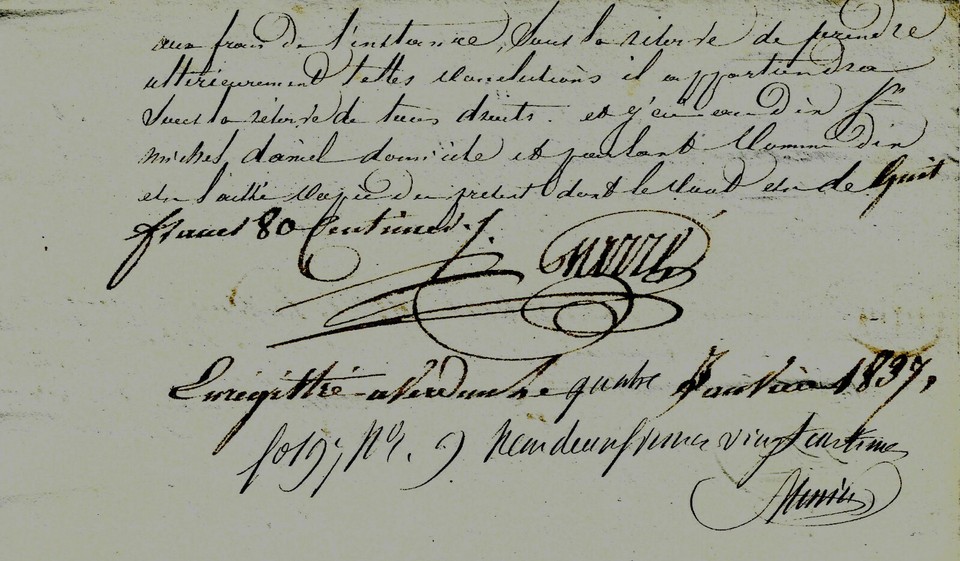 aux frais de l'instance, sous la réserve de prendre
ultérieurement telles conclusions il appartiendra
sous la réserve de tous droits. et j'ai au din Sr
michel daniel domicile et parlant comme din
est laissé copie du présent dont le cout est de huit
francs 80 Centimes ./.
Enregistré a Verdun le quatre Janvier 1837,
fo 197 No. 9 Reçu deux francs vingt centimes